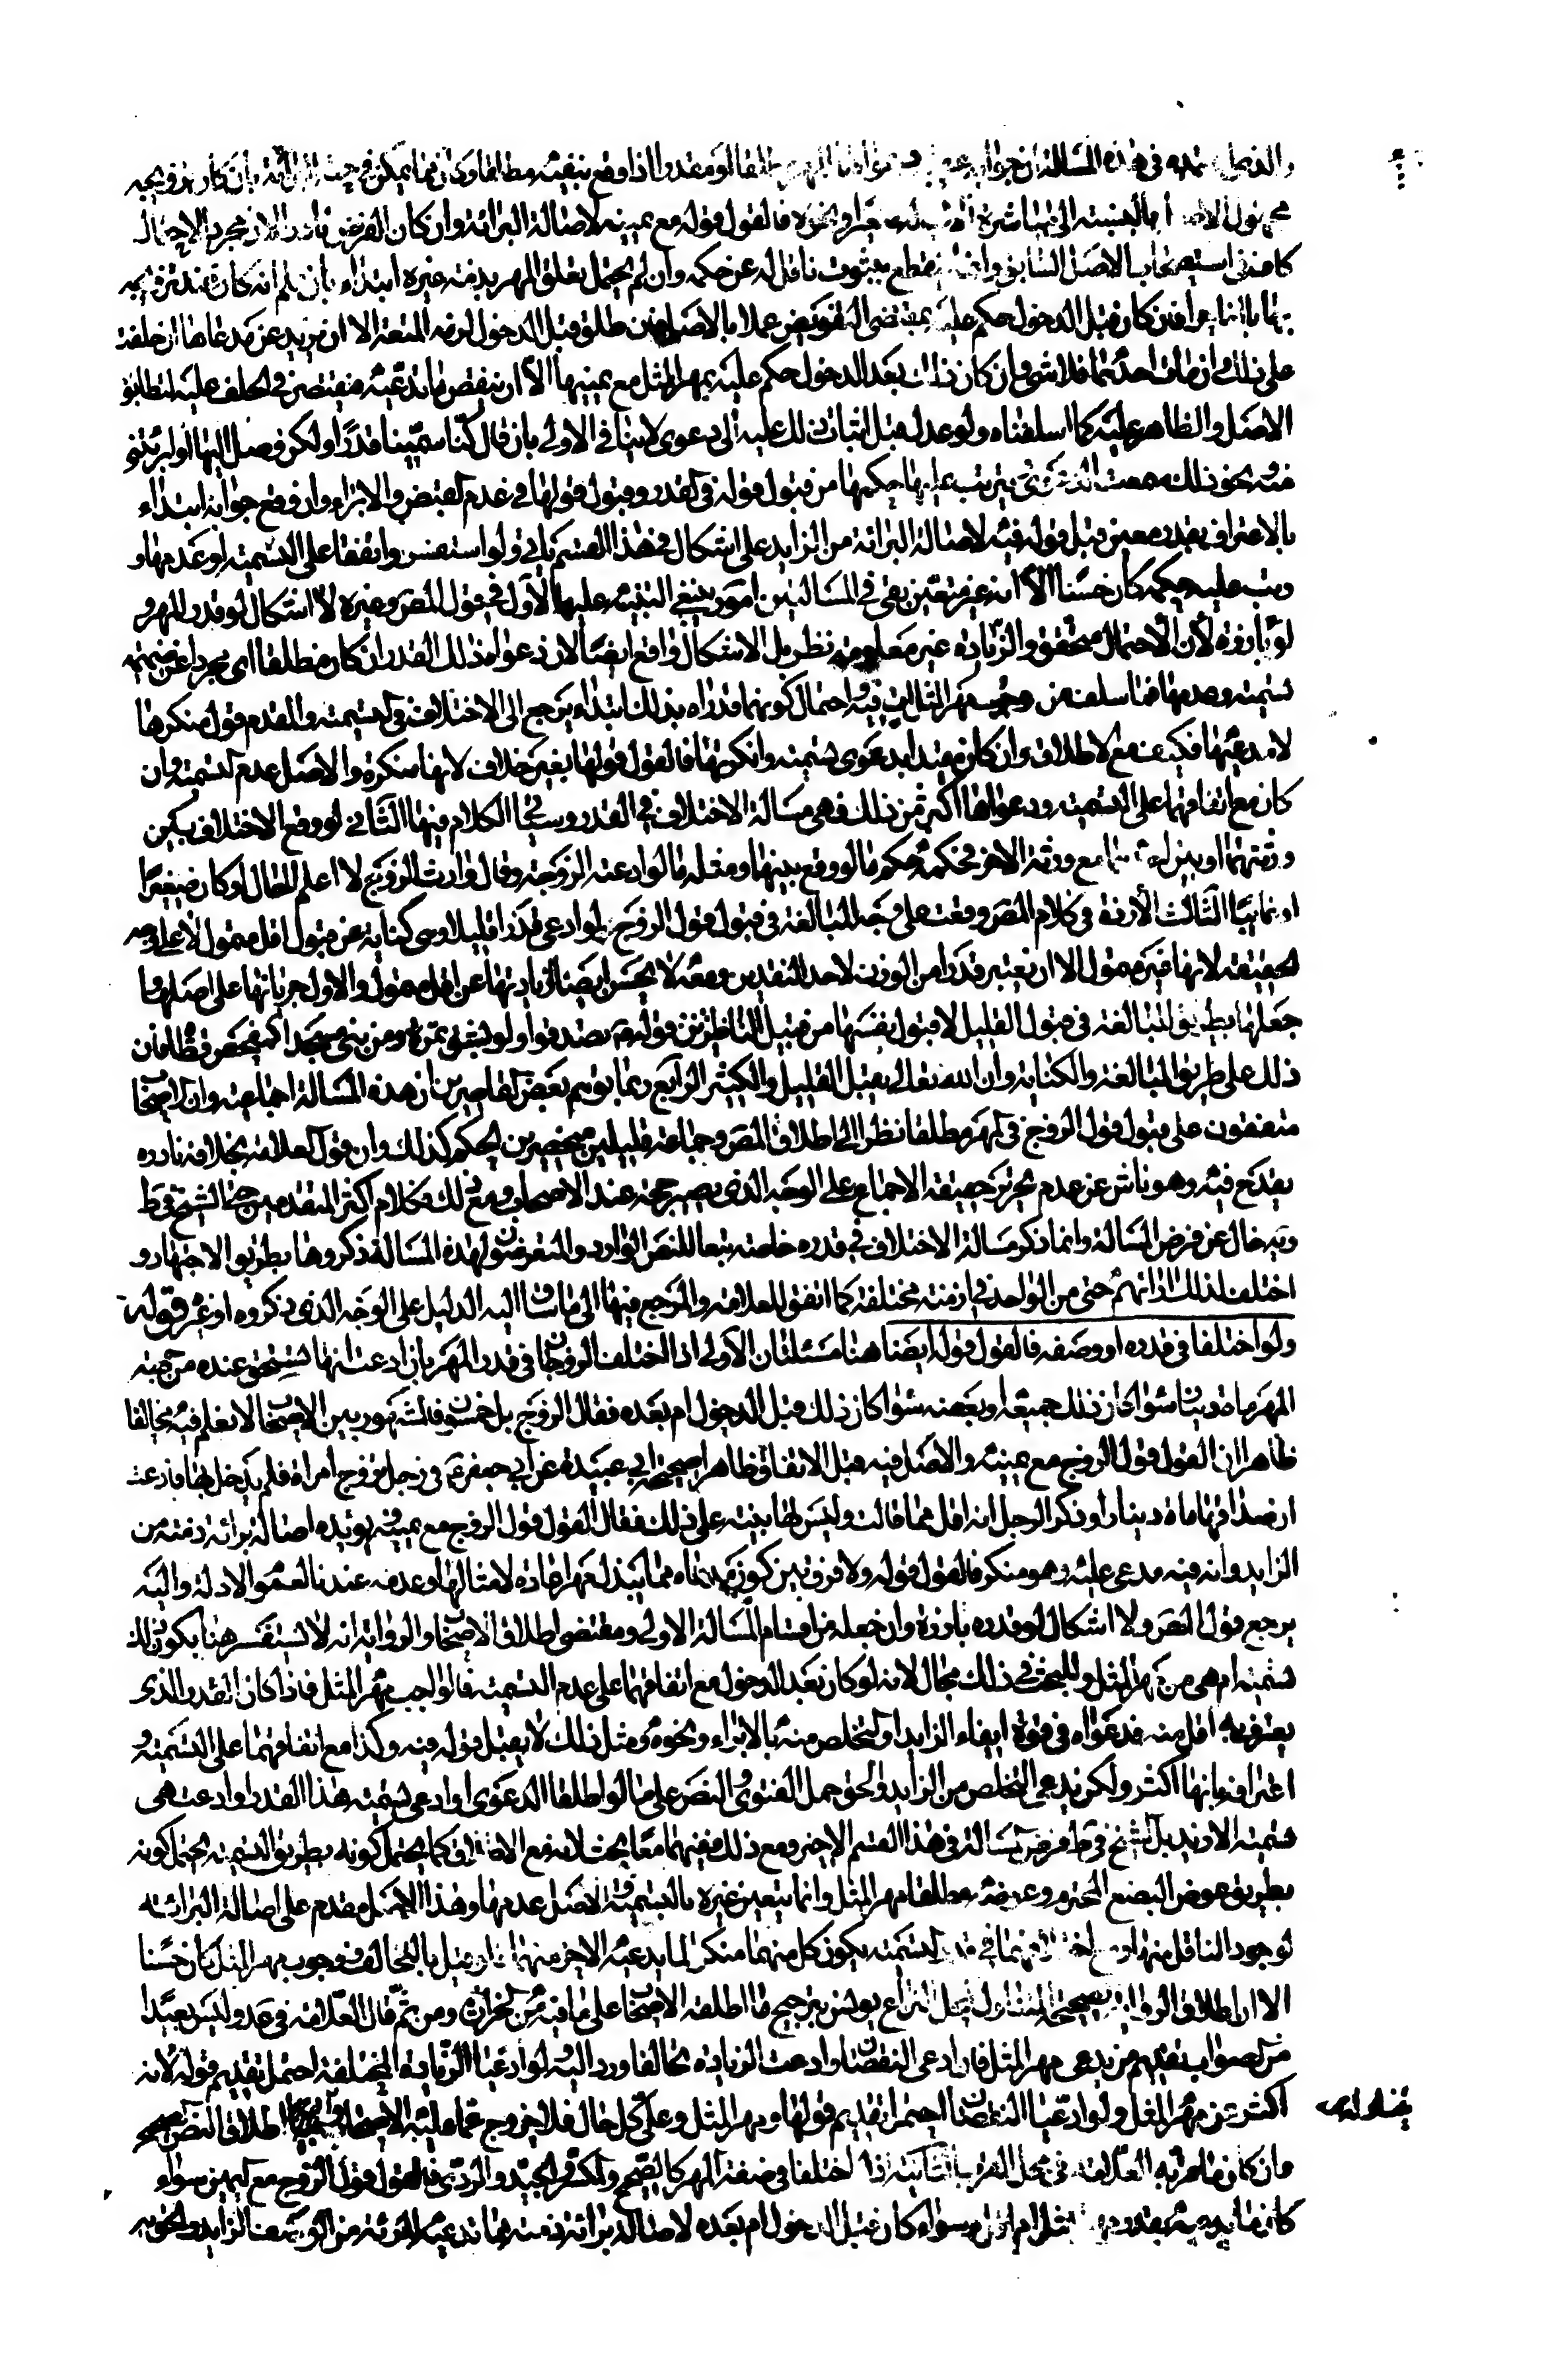 والذي في هذه المسالة ان جوابه او مقدرا اذا وقع بنفيه مطلقا وكان مما يمكن في
مجهول الاصل بالنسبة الى مباشرة فالقول قوله مع يمينه لاصالة البرائة وان كان الفرض نادرا لان مجرد الاحتمال
كاف في استصحاب الاصل السابق وانما يقطع بثبوت ناقل له عن حكمه وان لم يحتمل تعلق المهر بذمة غيره ابتداء بان علم انه كان عند تزويجه
بها بالغا فان كان قبل الدخول حكم عليه بمقتضى التفويض عملا بالاصل فان طلق قبل الدخول لزمه المتعة الا ان يزيد عن مدعاها ان حلفت
على ذلك وان مات احدهما فلا شي وان كان ذلك بعد الدخول حكم عليه بمهر المثل مع يمينها الا ان ينقص ما تدعيه فيقتصر في الحلف عليه لتطابق
الاصل والظاهر عليه كما اسلفناه ولو عدل قبل اثبات ذلك عليه الى دعوى لا ينافي الاولى بان قال كنا سمينا قدرا ولكن وصل اليها او ابرئتني
منه ونحو ذلك سمعت الدعوى ويترتب عليها حكمها من قبول قوله في القدر وقبول قولها في عدم القبض والابراء وان وقع جوابه ابتداء
بالاعتراف بقدر معين قبل قوله فيه لاصالة البرائة من الزايد على اشكال في هذا القسم ياتي ولو استفسر واتفقا على التسمية او عدمها و
رتب عليه حكمه كان حسنا الا انه غير متعين بقى في المسالتين امور ينبغي التنبيه عليها الاول في قول المص وغيره لا اشكال لو قدر المهر و
لو بارزة لان الاحتمال متحقق والزيادة غير معلومة نظر بل الاشكال واقع ايضا لان دعواه ذلك القدر ان كان مطلقا اى مجردا عن
تسمية وعدمها فما سلف من وجوب مهر المثل ات فيه واحتمال كونهما قدراه بذلك ابتداء يرجع الى الاختلاف في التسمية والمقدم قول منكرها
لا مدعيها فكيف مع الاطلاق وان كان مقيدا بدعوى تسمية وانكرتها فالقول قولها بغير خلاف لانها منكرة والاصل عدم التسمية وان
كان مع اتفاقهما على التسمية ودعواها اكثر من ذلك فهي مسالة الاختلاف في القدر وسيجئ الكلام فيها الثاني لو وقع الاختلاف بين
ورثتهما او بين احدهما مع ورثة الاخر فحكمه حكم ما لو وقع بينهما ومثله ما لو ادعته الزوجة وقال وارث الزوج لا اعلم الحال او كان صغيرا
او غائبا الثالث الأرزة في كلام المصر وقعت على وجه المبالغة في قبول قول الزوج لو ادعى قدرا قليلا وهي كناية عن قبول اقل متمول لا على وجه
الحقيقة لانها غير متمول الا ان يعتبر قدرا من الوزن لاحد النقدين ومعه لا يحسن ايضا لزيادتها عن اقل متمول والاول جريانها على اصلها و
جعلها بطريق المبالغة في قبول القليل لا قبول نفسها من قبيل التاظرين قوله تصدقوا ولو بشق تمرة ومن بنى مسجدا كمفحص قطاة فان
ذلك على طريق المبالغة والكناية وان الله تعالى يقبل القليل والكثير الرابع ربما توهم بعض القاصرين ان هذه المسالة اجماعية وان الاصحاب
متفقون على قبول قول الزوج في المهر مطلقا نظرا الى اطلاق المصر وجماعة قليلين منحصرين الحكم كذلك وان قول العلامة بخلافه نادرة
يقدح فيه وهو ناش عن عدم تحرير حقيقة الاجماع على الوجه الذى يصير حجة عند الاصحاب ومع ذلك فكلام اكثر المتقدمين حتى الشيخ في ط
وغيره خال عن فرض المسالة وانما ذكر مسالة الاختلاف في قدره خاصة تبعا للنص الوارد والمتعرضون لهذه المسالة ذكروها بطريق الاجتهاد و
اختلف لذلك ارائهم حتى من الواحد في ازمنة مختلفة كما اتفق للعلامة والمرجع فيها الى ما ساق اليه الدليل على الوجه الذى ذكروه او غيره قوله
ولو اختلفا في قدره او وصفه فالقول قوله ايضا هنا مسئلتان الاولى اذا اختلف الزوجان في قدر المهر بان ادعت انها تستحق عنده من جهة
المهر مائة دينارا سواء كان ذلك جميعه او بعضه سواء كان ذلك قبل الدخول ام بعده فقال الزوج بل خمسون فالمشهور بين الاصحاب لا نعلم فيه مخالفا
ظاهرا ان القول قول الزوج مع يمينه والاصل فيه قبل الاتفاق ظاهرا صحيحة ابي عبيدة عن ابي جعفر ع في رجل تزوج امراة فلم يدخل بها فادعت
ان صداقها ماة دينار وذكر الرجل انه اقل مما قالت وليس لها بينة على ذلك فقال القول قول الزوج مع يمينه ويؤيده اصالة برائة ذمته من
الزايد وانه فيه مدعى عليه وهو منكر فالقول قوله ولا فرق بين كون مدعاه مما يبذل مهرا عادة لامثالها وعدمه عندنا لعموم الادلة واليه
يرجع قول المصر ولا اشكال لو قدره بارزة وان جعله من اقسام المسالة الاولى ومقتضى اطلاق الاصحاب والرواية انه لا يستفسر هنا بكون ذلك
تسمية ام هي من مهر المثل وللبحث في ذلك مجال لانه لو كان بعد الدخول مع اتفاقهما على عدم التسمية فالواجب مهر المثل فاذا كان القدر الذى
يعترف به اقل منه فدعواه في قوة ايفاء الزايد او التخلص منه بالابراء ونحوه ومثل ذلك لا يقبل قوله فيه وكذا مع اتفاقهما على التسمية و
اعترافه بانها اكثر ولكن يدعي التخلص من الزايد والحق حمل الفتوى والنص على ما لو اطلقا الدعوى او ادعى تسمية هذا القدر وادعت هي
تسمية الازيد بل الشيخ في ط فرض المسالة في هذا القسم الاخير ومع ذلك ففيهما معا بحث لانه مع الاطلاق كما يحتمل كونه بطريق التسمية يحتمل كونه
بطريق عوض البضع المحترم وعوضه مطلقا مهر المثل وانما يتعين غيره بالتسمية والاصل عدمها وهذا الاصل مقدم على اصالة البرائة
لوجود الناقل منها ومع اختلافهما في قدر التسمية يكون كل منهما منكرا لما يدعيه الاخر منهما فلو قيل بالتحالف ووجوب مهر المثل كان حسنا
الا ان اطلاق الرواية الصحيحة المتناول لمحل النزاع يؤنس بترجيح ما اطلقه الاصحاب على ما فيه من الحزازة ومن ثم قال العلامة في عد وليس بعيدا
من الصواب تقديم من يدعي مهر المثل فان ادعى النقصان وادعت الزيادة تحالفا ورد اليه ولو ادعيا الزيادة المختلفة احتمل تقديم قوله لانه
اكثر من مهر المثل ولو ادعيا النقصان احتمل تقديم قولها ومهر المثل وعلى كل حال فلا خروج عما عليه الاصحاب اطلاق النص
وان كان ما قربه العلامة في محل القرب الثانية اذا اختلفا في صفة المهر كالصحيح والمكسر والجيد والردي فالقول قول الزوج مع اليمين سواء
كان ما يدعيه بقدر مهر المثل ام اقل وسواء كان قبل الدخول ام بعده لاصالة برائة ذمته مما تدعيه المراة من الوصف الزايد